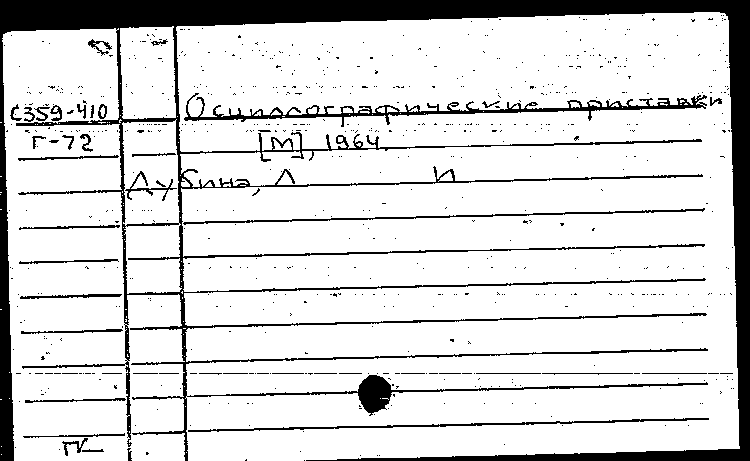 С359-410 Осциллографические приставки
Г-72 [М], 1964.
Дубина, Л И
ГК